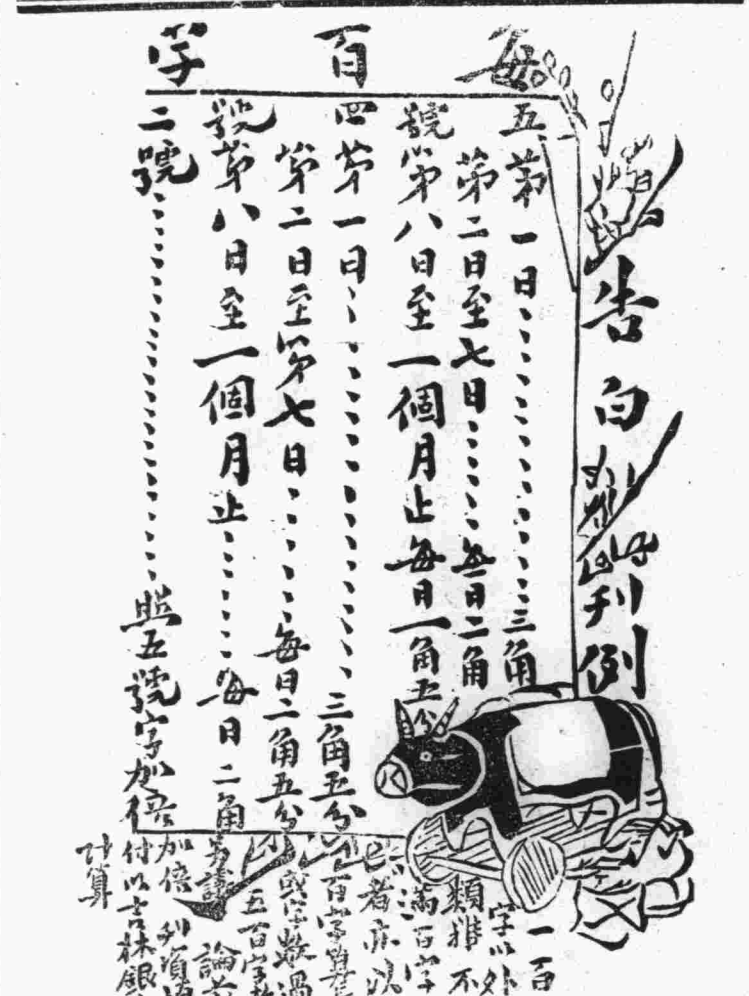 告白刊例
每百字
五號
第一日三角
第二日至七日每日二角
第八日至一個月止每日一角五分
四號
第一日三角五分
第二日至第七日每日二角五分
第八日至一個月止每日二角
二號照五號字加倍
一百
字以外
類推不
滿百字
者亦以
百字算
或字數過
五百字
另議 論前
加倍 刊資
付以吉林銀
計算